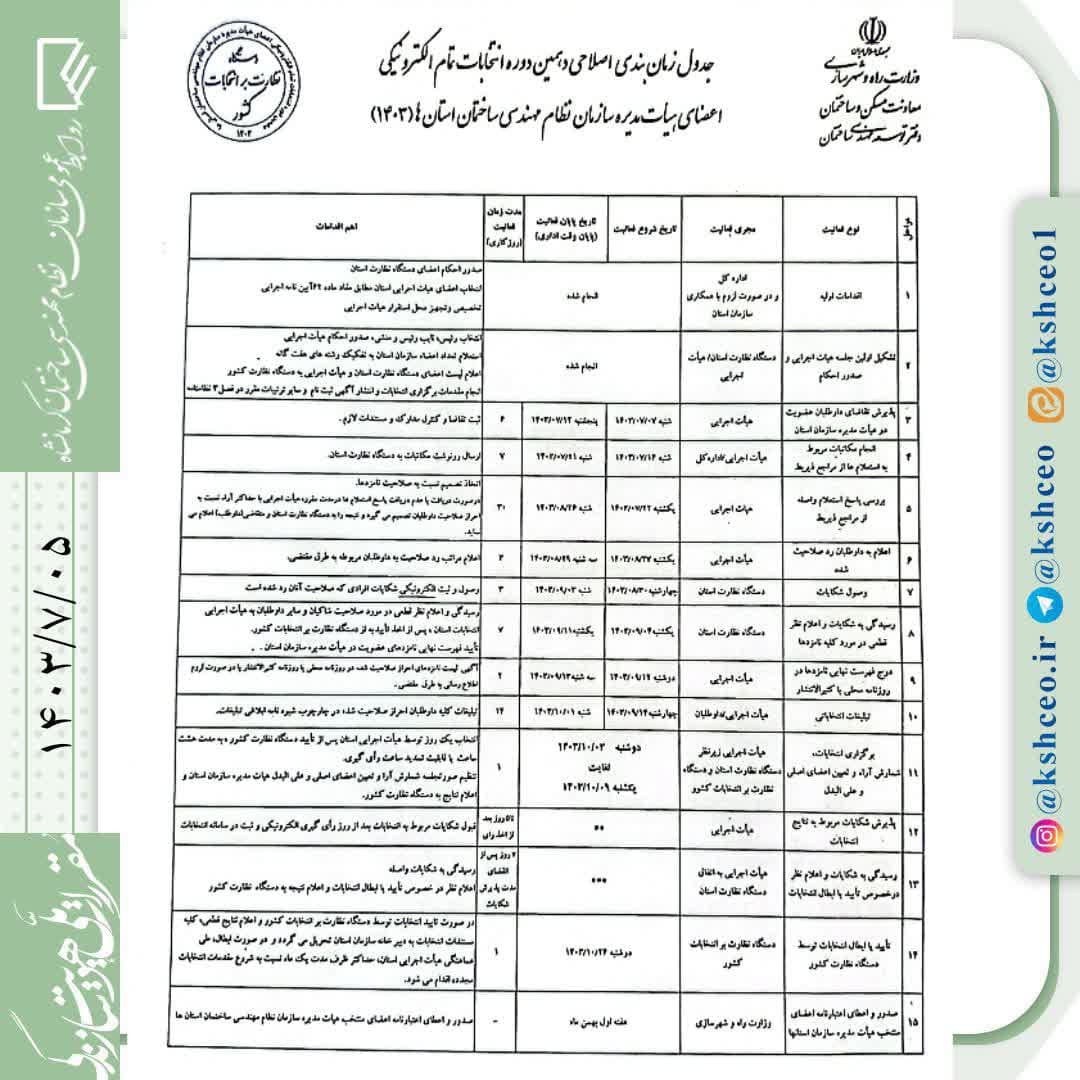 جمهوری اسلامی ایران
وزارت راه و شهرسازی
معاونت مسکن و ساختمان
دفتر توسعه مهندسی ساختمان
جدول زمان بندی اصلاحی دهمین دوره انتخابات تمام الکترونیکی
اعضای هیأت مدیره سازمان نظام مهندسی ساختمان استان ها (۱۴۰۳)
دستگاه
نظارت بر انتخابات
کشور
۱۴۰۳
مراحل
نوع فعالیت
مجری فعالیت
تاریخ شروع فعالیت
تاریخ پایان فعالیت
(پایان وقت اداری)
مدت زمان
فعالیت
(روزکاری)
اهم اقدامات
۱
اقدامات اولیه
اداره کل
و در صورت لزوم با همکاری
سازمان استان
انجام شده
صدور احکام اعضای دستگاه نظارت استان
انتخاب اعضای هیات اجرایی استان مطابق مفاد ماده ۶۲ آیین نامه اجرایی
تخصیص و تجهیز محل استقرار هیات اجرایی
۲
تشکیل اولین جلسه هیات اجرایی و
صدور احکام
دستگاه نظارت استان/ هیأت
اجرایی
انجام شده
انتخاب رئیس، نایب رئیس و منشی، صدور احکام هیأت اجرایی
استعلام تعداد اعضاء سازمان استان به تفکیک رشته های هفت گانه
اعلام لیست اعضای دستگاه نظارت استان و هیأت اجرایی به دستگاه نظارت کشور
انجام مقدمات برگزاری انتخابات و انتشار آگهی ثبت نام و سایر ترتیبات مقرر در فصل ۳ نظامنامه
۳
پذیرش تقاضای داوطلبان عضویت
در هیأت مدیره سازمان استان
هیأت اجرایی
شنبه ۱۴۰۳/۰۷/۰۷
پنجشنبه ۱۴۰۳/۰۷/۱۲
۶
ثبت تقاضا و کنترل مدارک و مستندات لازم.
۴
انجام مکاتبات مربوط
به استعلام ها از مراجع ذیربط
هیأت اجرایی/اداره کل
شنبه ۱۴۰۳/۰۷/۱۴
شنبه ۱۴۰۳/۰۷/۲۱
۷
ارسال رونوشت مکاتبات به دستگاه نظارت استان.
۵
بررسی پاسخ استعلام واصله
از مراجع ذیربط
هیات اجرایی
یکشنبه ۱۴۰۳/۰۷/۲۲
شنبه ۱۴۰۳/۰۸/۲۶
۳۰
اتخاذ تصمیم نسبت به صلاحیت نامزدها.
درصورت دریافت یا عدم دریافت پاسخ استعلام ها درمدت مقرر، هیأت اجرایی با حداکثر آراء نسبت به
احراز صلاحیت داوطلبان تصمیم می گیرد و نتیجه را به دستگاه نظارت استان و متقاضی(داوطلب) اعلام می
نماید.
۶
اعلام به داوطلبان رد صلاحیت
شده
هیأت اجرایی
یکشنبه ۱۴۰۳/۰۸/۲۷
سه شنبه ۱۴۰۳/۰۸/۲۹
۳
اعلام مراتب رد صلاحیت به داوطلبان مربوطه به طرق مقتضی.
۷
وصول شکایات
دستگاه نظارت استان
چهارشنبه ۱۴۰۳/۰۸/۳۰
شنبه ۱۴۰۳/۰۹/۰۳
۳
وصول و ثبت الکترونیکی شکایات افرادی که صلاحیت آنان رد شده است
۸
رسیدگی به شکایات و اعلام نظر
قطعی در مورد کلیه نامزدها
دستگاه نظارت استان
یکشنبه ۱۴۰۳/۰۹/۰۴
یکشنبه ۱۴۰۳/۰۹/۱۱
۷
رسیدگی و اعلام نظر قطعی در مورد صلاحیت شاکیان و سایر داوطلبان به هیأت اجرایی
انتخابات استان ، پس از اخذ تأییدیه از دستگاه نظارت بر انتخابات کشور.
تأیید فهرست نهایی نامزدهای عضویت در هیأت مدیره سازمان استان .
۹
درج فهرست نهایی نامزدها در
روزنامه محلی یا کثیرالانتشار
هیأت اجرایی
دوشنبه ۱۴۰۳/۰۹/۱۲
سه شنبه ۱۴۰۳/۰۹/۱۳
۲
آگهی لیست نامزدهای احراز صلاحیت شده در روزنامه محلی یا روزنامه کثیرالانتشار یا در صورت لزوم
اطلاع رسانی به طرق مقتضی.
۱۰
تبلیغات انتخاباتی
هیأت اجرایی/داوطلبان
چهارشنبه ۱۴۰۳/۰۹/۱۴
شنبه ۱۴۰۳/۱۰/۰۱
۱۴
تبلیغات کلیه داوطلبان احراز صلاحیت شده در چهارچوب شیوه نامه ابلاغی تبلیغات.
۱۱
برگزاری انتخابات،
شمارش آراء و تعیین اعضای اصلی
و علی البدل
هیأت اجرایی زیرنظر
دستگاه نظارت استان و دستگاه
نظارت بر انتخابات کشور
دوشنبه ۱۴۰۳/۱۰/۰۳
لغایت
یکشنبه ۱۴۰۳/۱۰/۰۹
۱
انتخاب یک روز توسط هیأت اجرایی استان پس از تأیید دستگاه نظارت کشور ، به مدت هشت
ساعت با قابلیت تمدید ساعت رأی گیری.
تنظیم صورتجلسه شمارش آراء و تعیین اعضای اصلی و علی البدل هیات مدیره سازمان استان و
اعلام نتایج به دستگاه نظارت کشور.
۱۲
پذیرش شکایات مربوط به نتایج
انتخابات
هیأت اجرایی
**
تا ۵ روز بعد
از اخذ رای
قبول شکایات مربوط به انتخابات بعد از روز رأی گیری الکترونیکی و ثبت در سامانه انتخابات
۱۳
رسیدگی به شکایات و اعلام نظر
درخصوص تأیید یا ابطال انتخابات
هیأت اجرایی به اتفاق
دستگاه نظارت استان
***
۷ روز پس از
انقضای
مدت پذیرش
شکایات
رسیدگی به شکایات واصله
اعلام نظر در خصوص تأیید یا ابطال انتخابات و اعلام نتیجه به دستگاه نظارت کشور
۱۴
تأیید یا ابطال انتخابات توسط
دستگاه نظارت کشور
دستگاه نظارت بر انتخابات
کشور
دوشنبه ۱۴۰۳/۱۰/۲۴
۱
در صورت تایید انتخابات توسط دستگاه نظارت بر انتخابات کشور و اعلام نتایج قطعی، کلیه
مستندات انتخابات به دبیر خانه سازمان استان تحویل می گردد و در صورت ابطال، طی
هماهنگی هیأت اجرایی استان، حداکثر ظرف مدت یک ماه نسبت به شروع مقدمات انتخابات
مجدد اقدام می شود.
۱۵
صدور و اعطای اعتبارنامه اعضای
منتخب هیأت مدیره سازمان استانها
وزارت راه و شهرسازی
هفته اول بهمن ماه
-
صدور و اعطای اعتبارنامه اعضای منتخب هیات مدیره سازمان نظام مهندسی ساختمان استان ها
روابط عمومی سازمان نظام مهندسی ساختمان کرمانشاه
۱۴۰۳/۷/۰۵
مقررات ملی هویت سازندگی
@kshceo.ir
@kshceo
@kshceo1